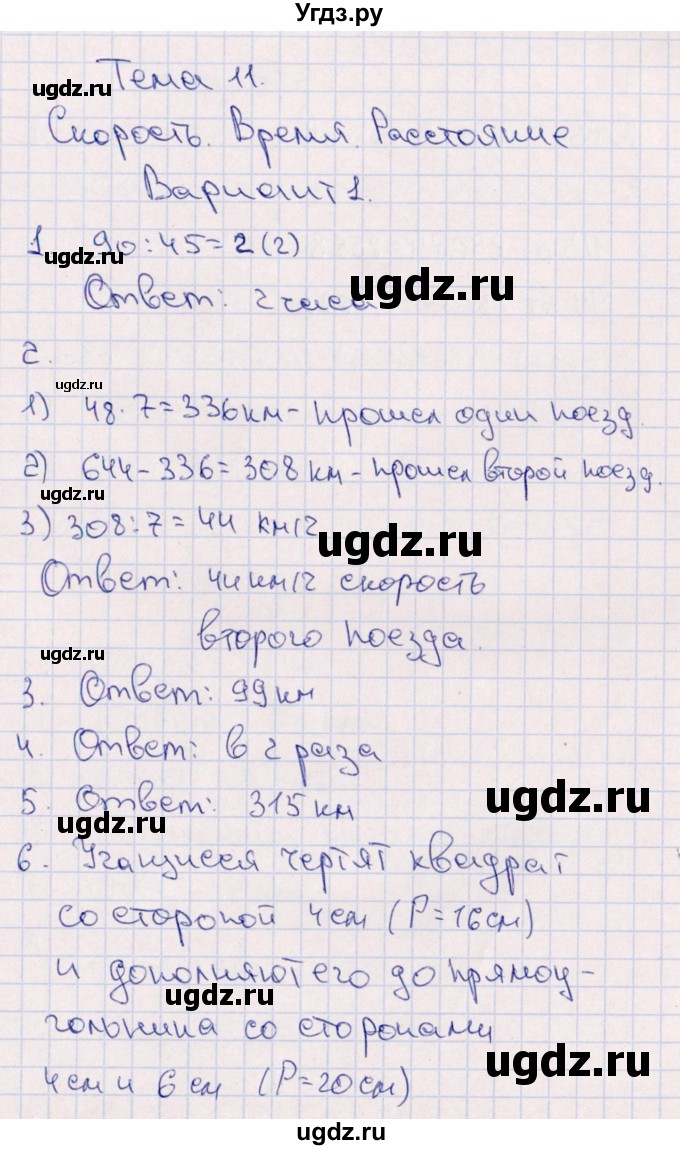 Угдз.ру
Тема 11.
ugdz.ru
Скорость. Время. Расстояние
Вариант 1.
1. 90:45=2(2)
ugdz.ru
Ответ: 2 часа
ugdz.ru
2.
ugdz.ru
1) 48·7=336км-прошел один поезд.
2) 644-336=308км-прошел второй поезд.
ugdz.ru
3) 308:7=44 км/ч
ugdz.ru
Ответ: 44км/ч скорость
второго поезда.
ugdz.ru
3. Ответ: 99км
4. Ответ: в 2 раза
ugdz.ru
5. Ответ: 315км
ugdz.ru
6. Учащиеся чертят квадрат
со стороной 4см (P=16см)
и дополняют его до прямоу-
ugdz.ru
гольника со сторонами
ugdz.ru
4см и 6см (P=20см)
ugdz.ru